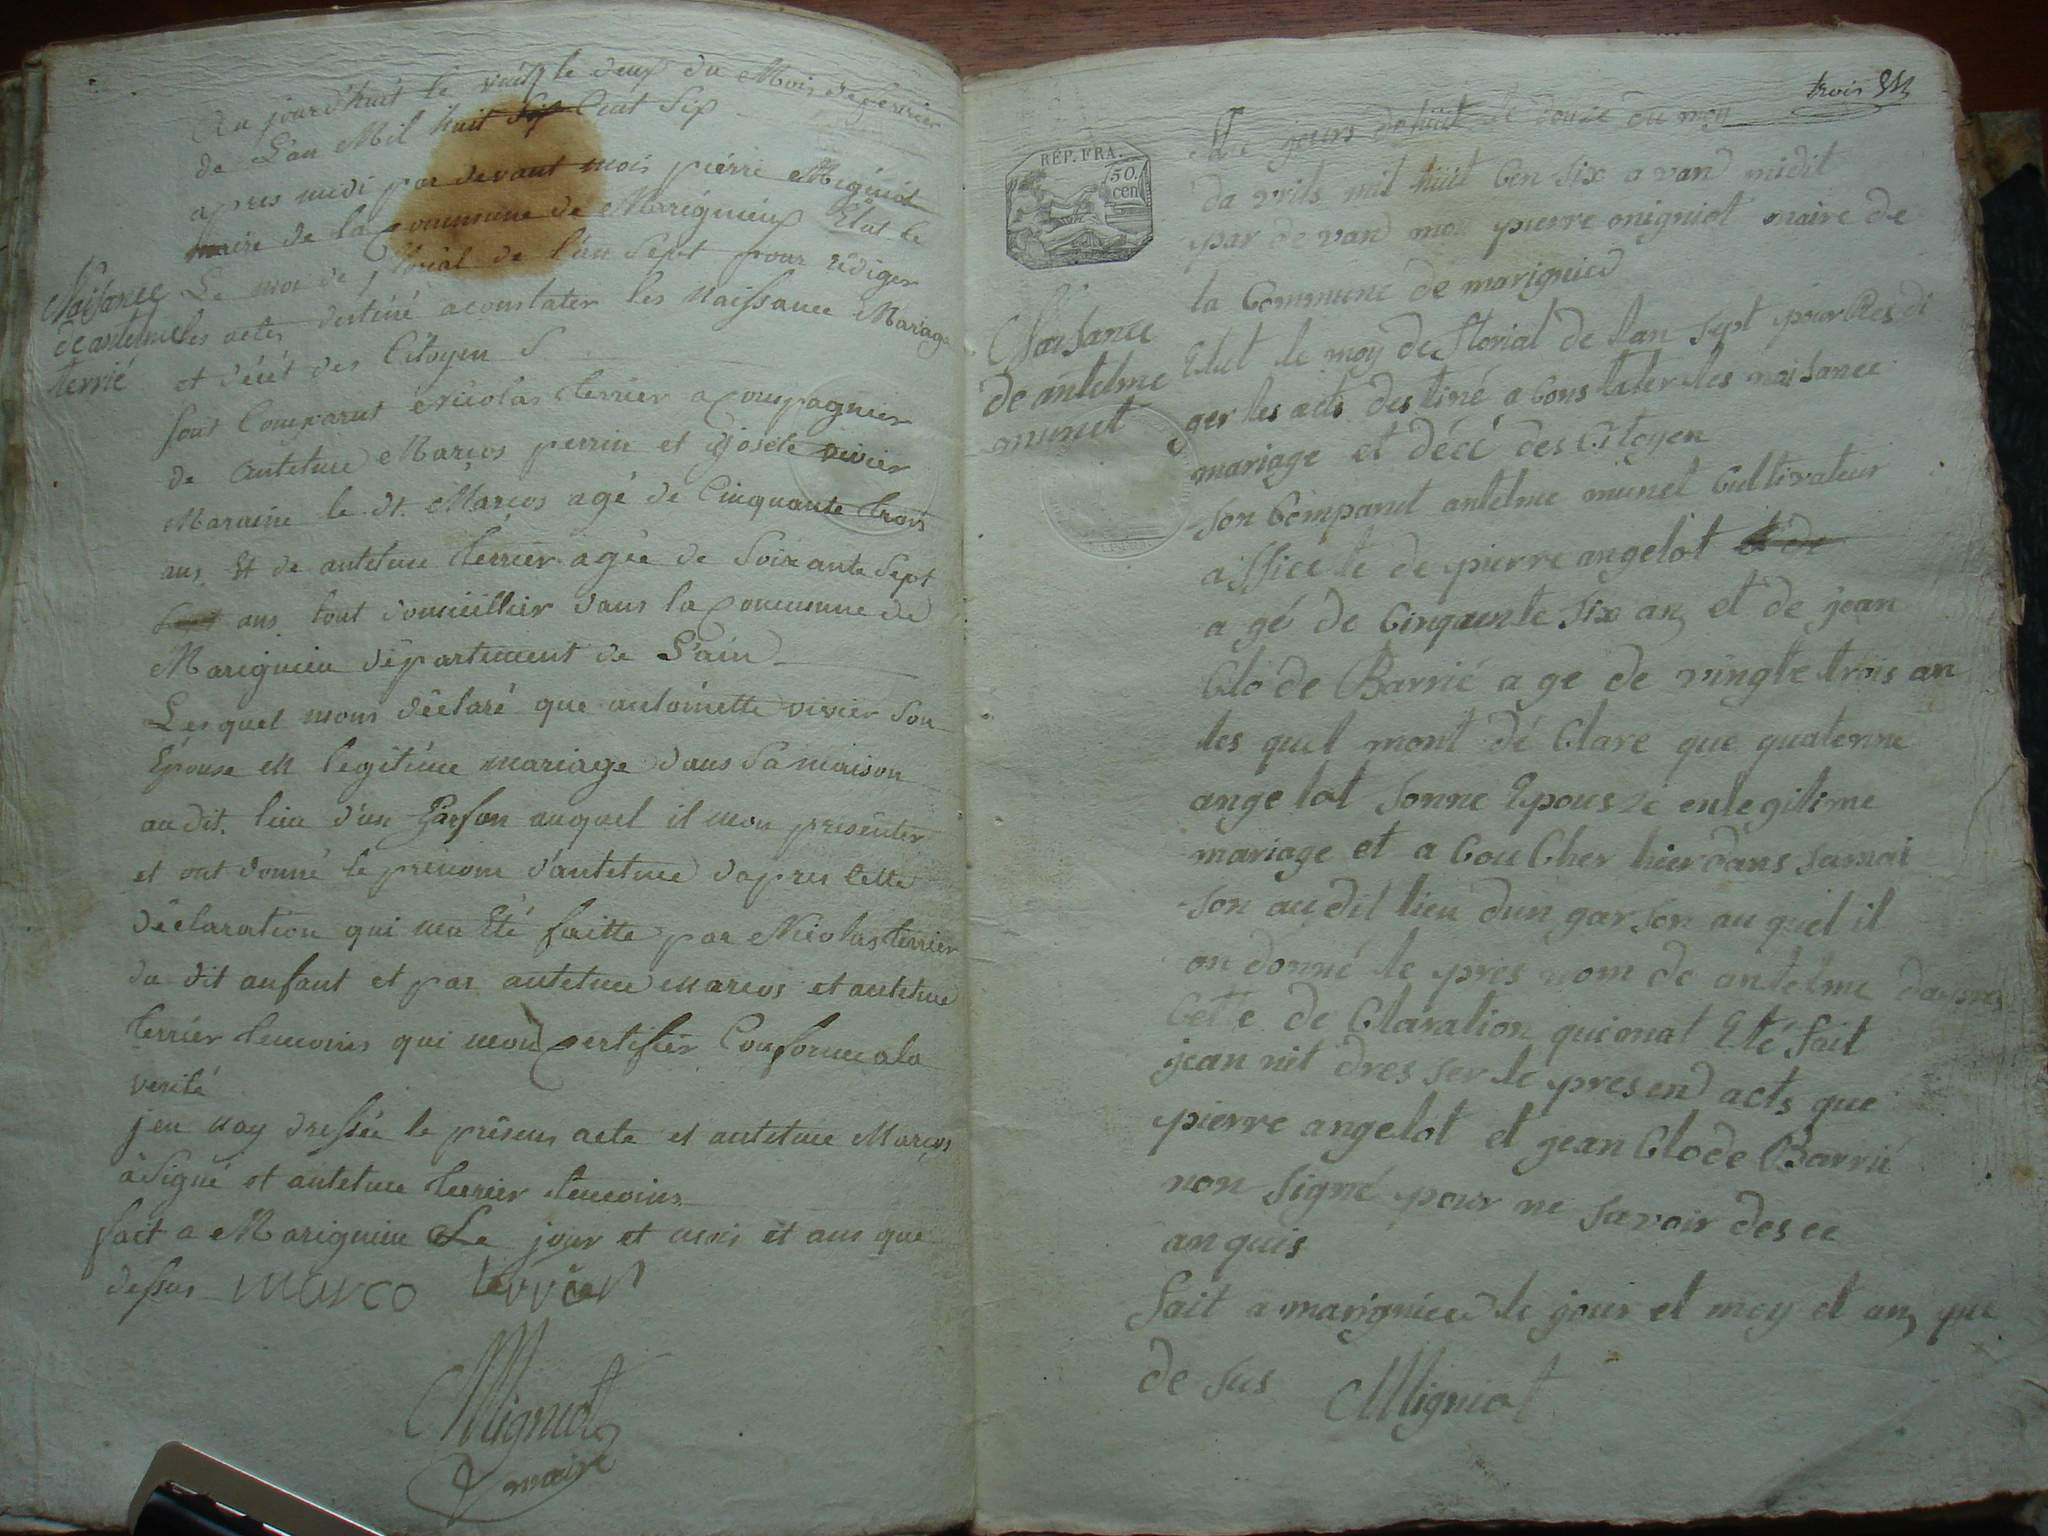 Au jourd'huit le vint le deux du Mois de fevrier
de L'an Mil huit Cent Six
apres midi par devant mois piérre Migniot
maire de la Commune de Marignieux Elut le
Le moi de florial de l'an Sept pour rédiger
les actes destiné a constater les Naissance Mariage
et décét des Citoyen S
Naisance
de antelme
terrié
sont Comparut Nicolas terrier acompagnier
de antelme Marcos perrin et Josete vivier
Maraine le dt. Marcos agé de Cinquante trois
ans Et de antelme terrier agée de Soixante Sept
ans tout domicillier dans la Commune de
Marignieu département de L'ain
Les quel mons déclaré que antoinette vivier Son
Epouse en legitime mariage dans Sa maison
au dit. lieu d'un Garson auquel il mon presenter
et ont donné le prénom d'antelme d'apres Cette
déclaration qui ma Eté faitte par Nicolas terrier
du dit anfant et par antelme marcos et antelme
terrier temoins qui mon certifier Conforme ala
verité
j'en nay dressée le présens acte et antelme Marcos
à Signé et antelme terrier temoins
fait a Marignieu Le jour et mois et ans que
dessus marco terrier
Migniot
maire
trois
RÉP. FRA.
50.
cen
jours dohuit le douze du moy
da vrils mil huit Cen Six a van midit
par de van moi pierre migniot maire de
la Commune de marignieu
Elut le moy de florial de lan Sept pour Resdi
ger les acts destiné a Cons tater les naisance
mariage et décé des Citoyen
Naisance
de antelme
munet
Son Comparut antelme munet Cultivateur
assiste de pierre angelot et de
a gé de Cinqante Six an et de jean
Clo de Barrié a ge de vingte trois an
les quel mont dé Clare que quaterine
angelot Sonne Epousze en legitime
mariage et a Cou Cher hier dans Samai
son au dit lieu dun garson au quel il
on donné le pres nom de antelme dapres
Cette de Claration qui mat Eté fait
jean nit dres ser le presend acts que
pierre angelot et jean Clode Barrié
non Signé pour ne Savoir des ce
an quis
Fait a marignieu le jour et moy et an que
de sus Migniot